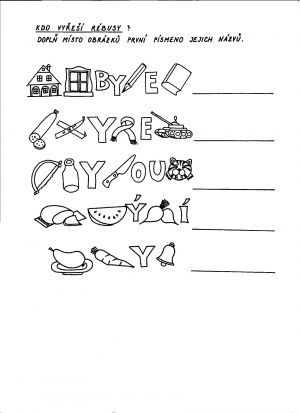 KDO VYŘEŠÍ RÉBUSY ?
DOPLŇ MÍSTO OBRÁZKŮ PRVNÍ PÍSMENO JEJICH NÁZVŮ.
BY E
Y E
Y OU
Ý Í
Y